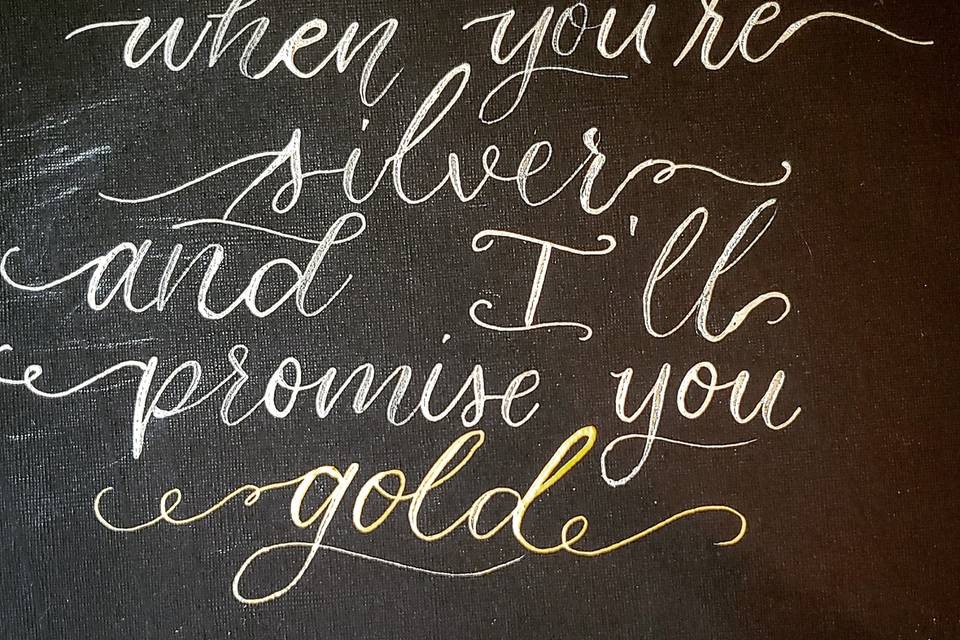 when you're
silver
and I'll
promise you
gold